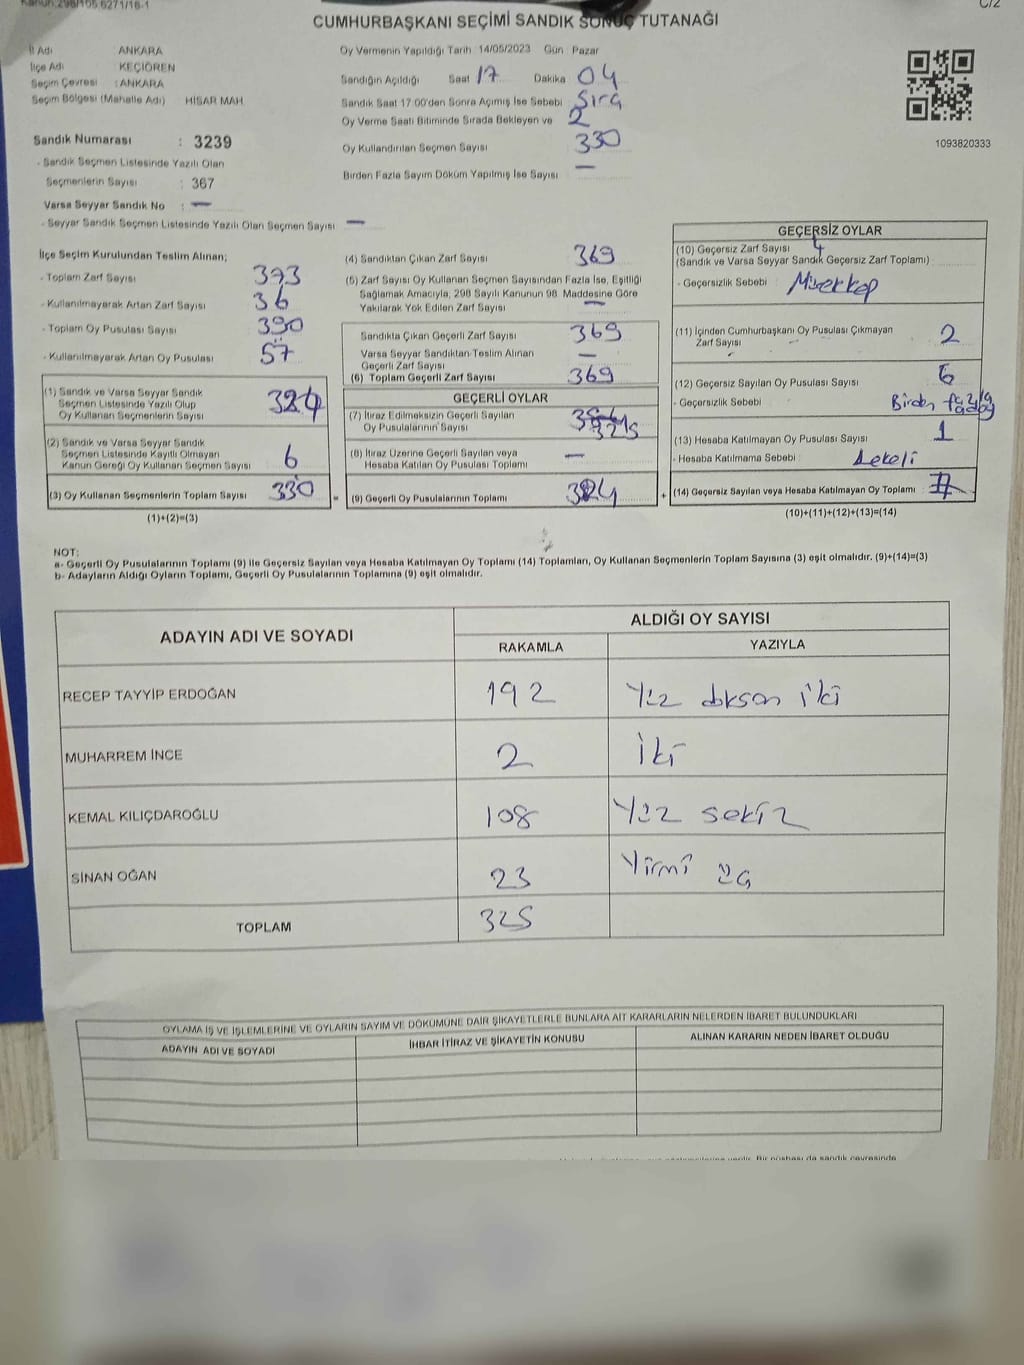 Kanun:298/105 6271/16-1
C/2
CUMHURBAŞKANI SEÇİMİ SANDIK SONUÇ TUTANAĞI
İl Adı ANKARA
İlçe Adı KEÇİÖREN
Seçim Çevresi : ANKARA
Seçim Bölgesi (Mahalle Adı) HİSAR MAH.
Sandık Numarası : 3239
- Sandık Seçmen Listesinde Yazılı Olan
Seçmenlerin Sayısı : 367
Varsa Seyyar Sandık No : —
- Seyyar Sandık Seçmen Listesinde Yazılı Olan Seçmen Sayısı —
Oy Vermenin Yapıldığı Tarih 14/05/2023 Gün Pazar
Sandığın Açıldığı Saat 17 Dakika 04
Sandık Saat 17:00'den Sonra Açımış İse Sebebi Sıra
Oy Verme Saati Bitiminde Sırada Bekleyen ve 2
Oy Kullandırılan Seçmen Sayısı 330
Birden Fazla Sayım Döküm Yapılmış İse Sayısı —
1093820333
İlçe Seçim Kurulundan Teslim Alınan;
- Toplam Zarf Sayısı 393
- Kullanılmayarak Artan Zarf Sayısı 36
- Toplam Oy Pusulası Sayısı 390
- Kullanılmayarak Artan Oy Pusulası 57
(1) Sandık ve Varsa Seyyar Sandık
Seçmen Listesinde Yazılı Olup
Oy Kullanan Seçmenlerin Sayısı 324
(2) Sandık ve Varsa Seyyar Sandık
Seçmen Listesinde Kayıtlı Olmayan
Kanun Gereği Oy Kullanan Seçmen Sayısı 6
(3) Oy Kullanan Seçmenlerin Toplam Sayısı 330
(1)+(2)=(3)
(4) Sandıktan Çıkan Zarf Sayısı 369
(5) Zarf Sayısı Oy Kullanan Seçmen Sayısından Fazla İse, Eşitliği
Sağlamak Amacıyla, 298 Sayılı Kanunun 98. Maddesine Göre
Yakılarak Yok Edilen Zarf Sayısı —
Sandıkta Çıkan Geçerli Zarf Sayısı 369
Varsa Seyyar Sandıktan Teslim Alınan
Geçerli Zarf Sayısı —
(6) Toplam Geçerli Zarf Sayısı 369
GEÇERLİ OYLAR
(7) İtiraz Edilmeksizin Geçerli Sayılan
Oy Pusulalarının Sayısı 325
(8) İtiraz Üzerine Geçerli Sayılan veya
Hesaba Katılan Oy Pusulası Toplamı —
= (9) Geçerli Oy Pusulalarının Toplamı 324 +
GEÇERSİZ OYLAR
(10) Geçersiz Zarf Sayısı 4
(Sandık ve Varsa Seyyar Sandık Geçersiz Zarf Toplamı) :
- Geçersizlik Sebebi : Mürekkep
(11) İçinden Cumhurbaşkanı Oy Pusulası Çıkmayan
Zarf Sayısı 2
(12) Geçersiz Sayılan Oy Pusulası Sayısı 6
- Geçersizlik Sebebi : Birden fazla aday
(13) Hesaba Katılmayan Oy Pusulası Sayısı 1
- Hesaba Katılmama Sebebi : Lekeli
(14) Geçersiz Sayılan veya Hesaba Katılmayan Oy Toplamı :
(10)+(11)+(12)+(13)=(14)
NOT:
a- Geçerli Oy Pusulalarının Toplamı (9) ile Geçersiz Sayılan veya Hesaba Katılmayan Oy Toplamı (14) Toplamları, Oy Kullanan Seçmenlerin Toplam Sayısına (3) eşit olmalıdır. (9)+(14)=(3)
b- Adayların Aldığı Oyların Toplamı, Geçerli Oy Pusulalarının Toplamına (9) eşit olmalıdır.
ADAYIN ADI VE SOYADI ALDIĞI OY SAYISI
RAKAMLA YAZIYLA
RECEP TAYYİP ERDOĞAN 192 Yüz doksan iki
MUHARREM İNCE 2 iki
KEMAL KILIÇDAROĞLU 108 Yüz sekiz
SİNAN OĞAN 23 Yirmi üç
TOPLAM 325
OYLAMA İŞ VE İŞLEMLERİNE VE OYLARIN SAYIM VE DÖKÜMÜNE DAİR ŞİKAYETLERLE BUNLARA AİT KARARLARIN NELERDEN İBARET BULUNDUKLARI
ADAYIN ADI VE SOYADI İHBAR İTİRAZ VE ŞİKAYETİN KONUSU ALINAN KARARIN NEDEN İBARET OLDUĞU